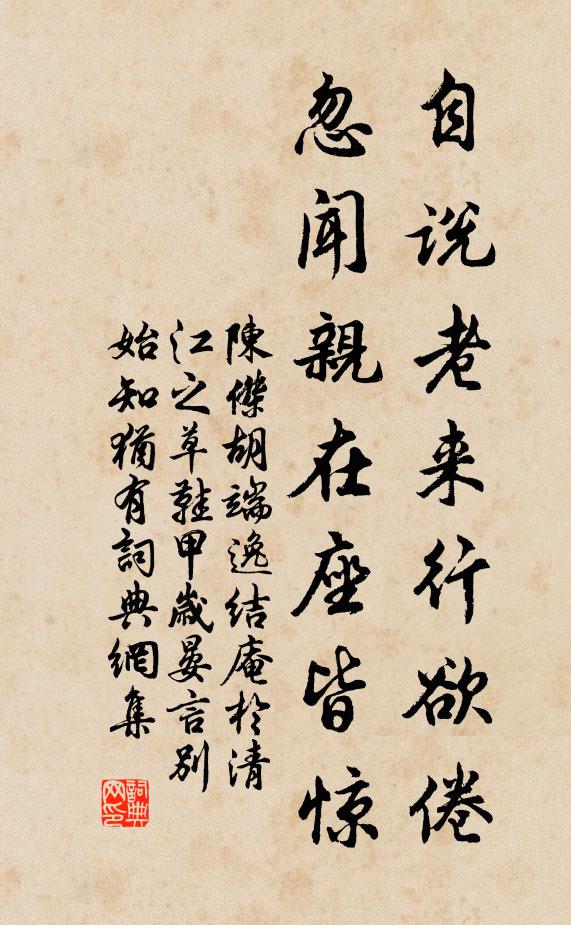 自说老来行欲倦
忽闻親在座皆惊
陳傑胡端逸结庵於清
江之草鞋甲歳晏言别
始知猶有詞典網集
詞典网印